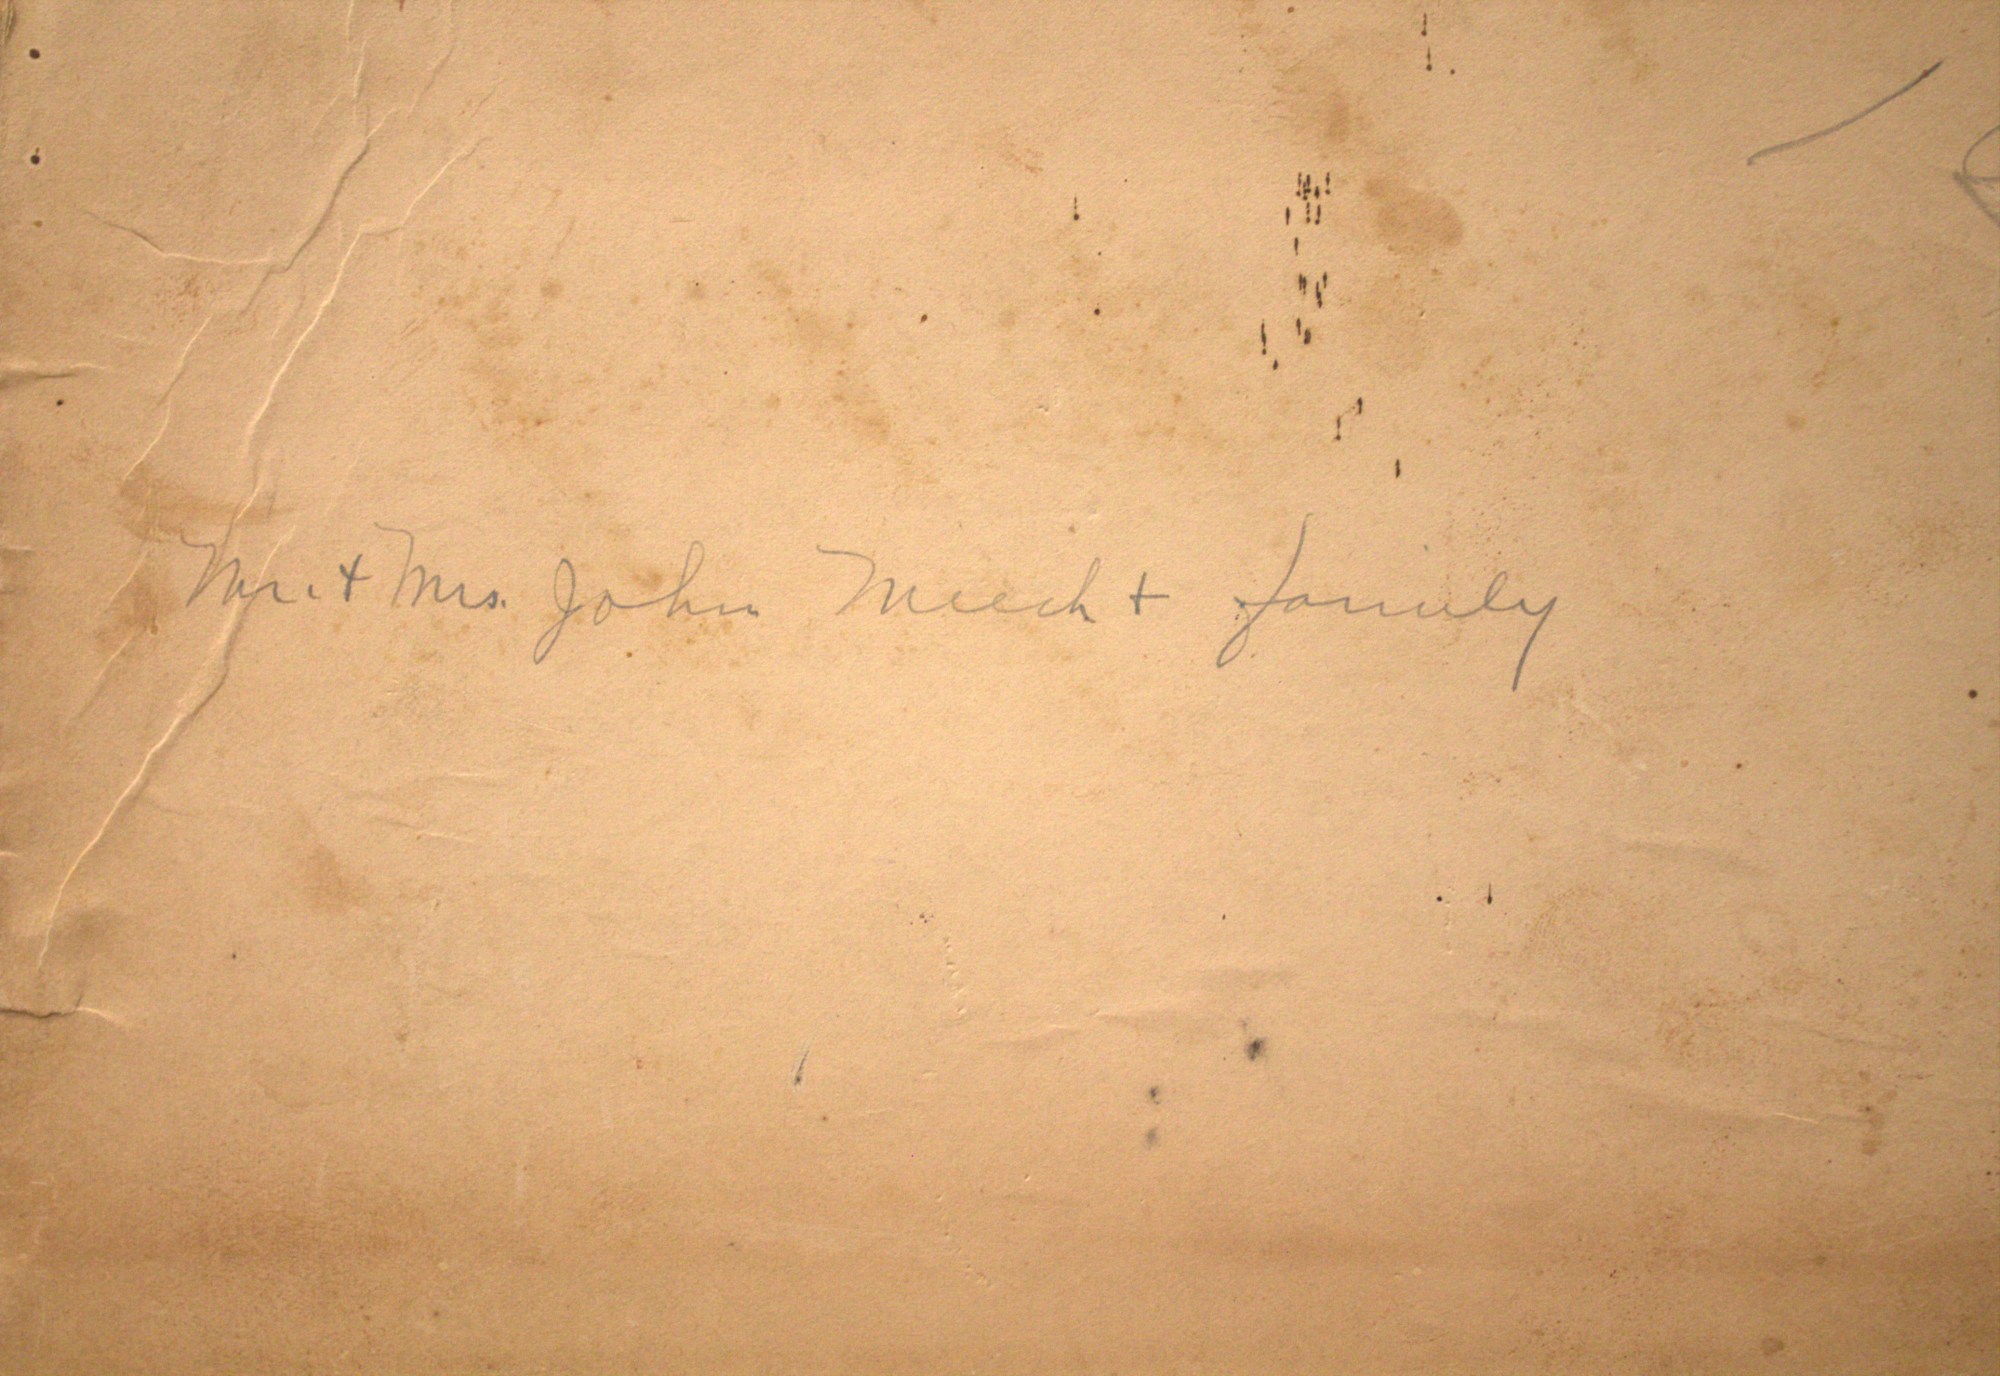 Mr. + Mrs. John Meech + family